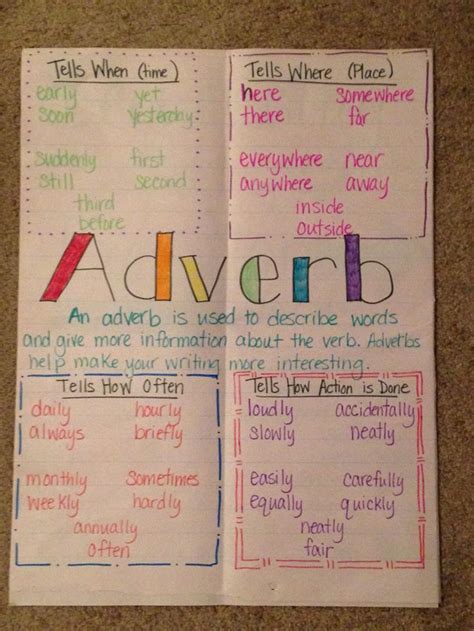 Tells When (time)
early yet
soon yesterday
suddenly first
still second
third
before
Tells Where (Place)
here somewhere
there far
everywhere near
anywhere away
inside
outside
Adverb
An adverb is used to describe words
and give more information about the verb. Adverbs
help make your writing more interesting.
Tells How Often
daily hourly
always briefly
monthly Sometimes
weekly hardly
annually
often
Tells How Action is Done
loudly accidentally
slowly neatly
easily carefully
equally quickly
neatly
fair